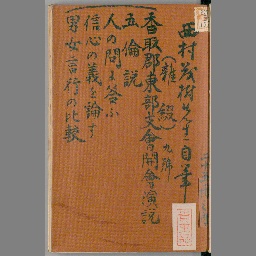 西村茂樹先生自筆
（雑綴）九號
香取郡東部支會開會演説
五倫説
人の問に答ふ
信心の義を論す
男女言行の比較